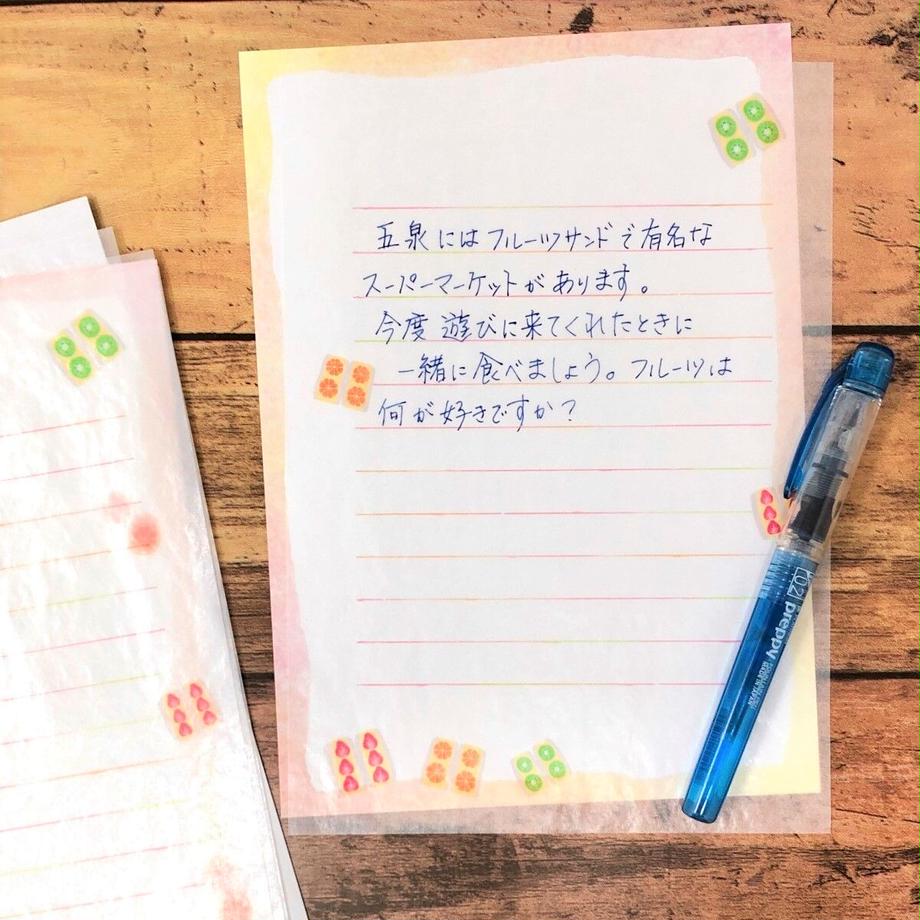 五泉にはフルーツサンドで有名な
スーパーマーケットがあります。
今度遊びに来てくれたときに
一緒に食べましょう。フルーツは
何が好きですか？
02 preppy